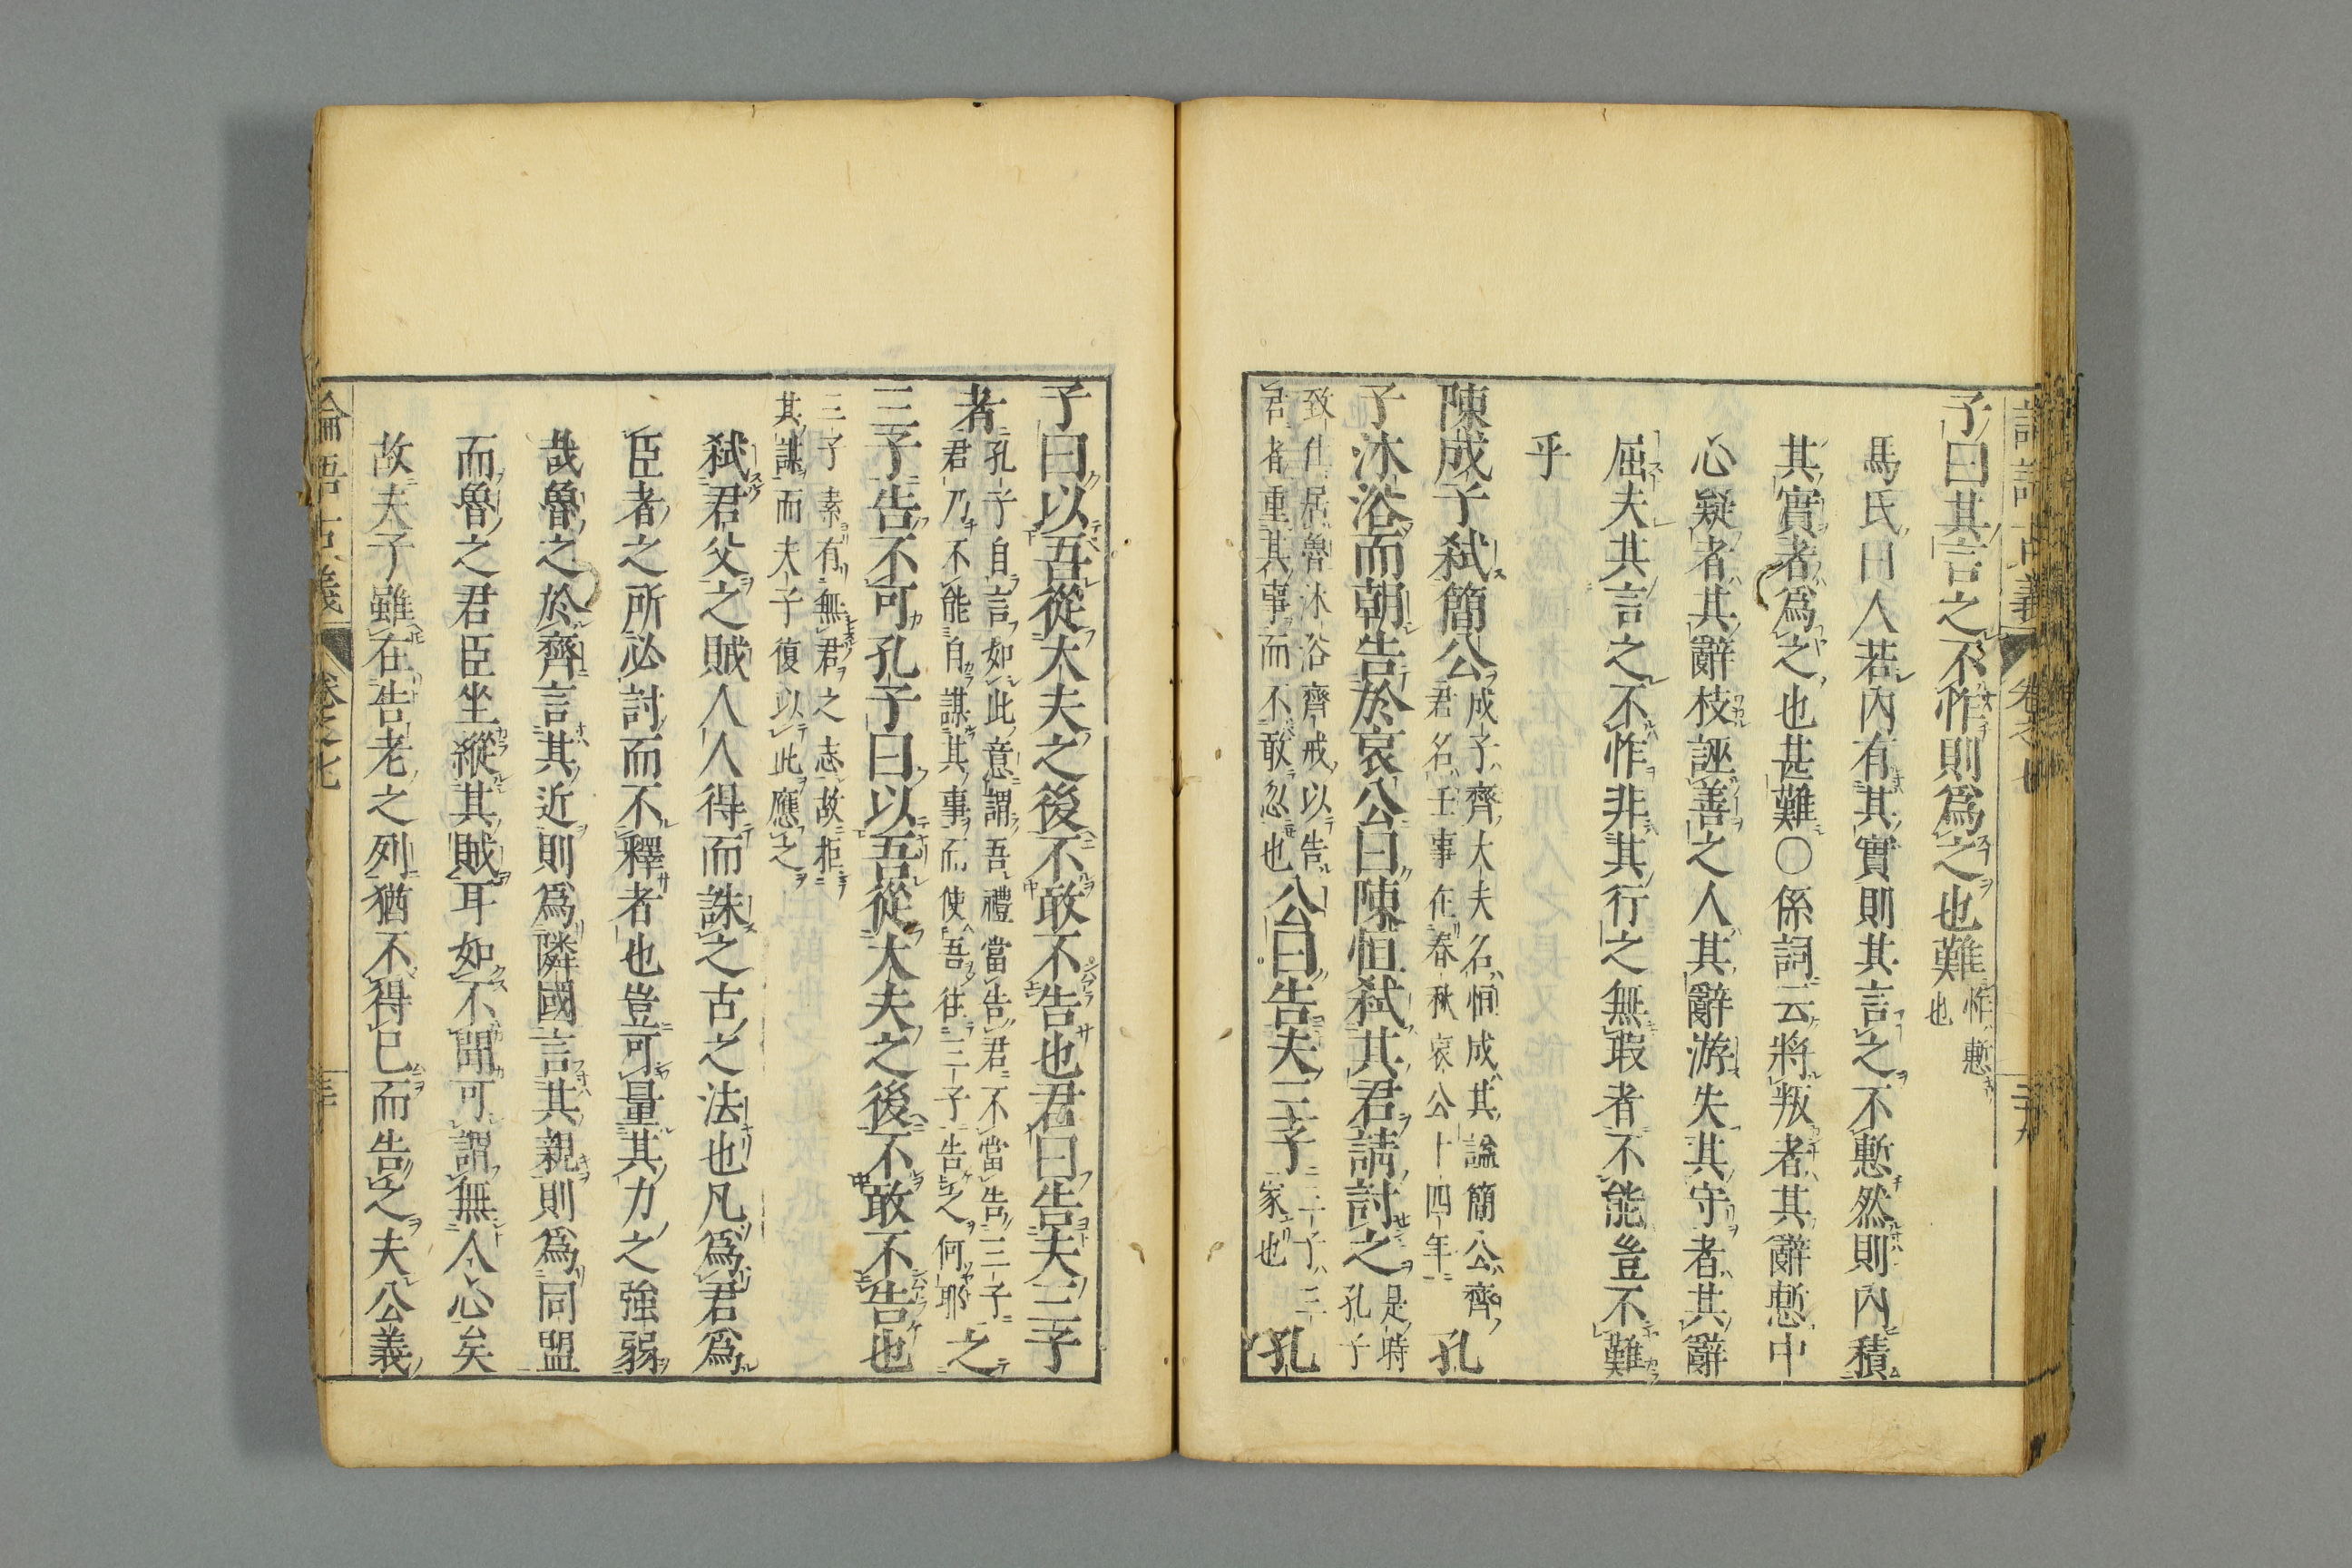 子曰其言之不怍則爲之也難怍慙也
馬氏曰人若內有其實則其言之不慙然則內積
其實者爲之也甚難〇係詞云將叛者其辭慙中
心疑者其辭枝誣善之人其辭游失其守者其辭
屈夫其言之不怍非其行之無瑕者不能豈不難
乎
陳成子弑簡公成子齊大夫名恒成其諡簡公齊君名壬事在春秋哀公十四年孔
子沐浴而朝告於哀公曰陳恒弑其君請討之是時孔子
致仕居魯沐浴齊戒以告君者重其事而不敢忽也公曰告夫三子三子三家也孔
子曰以吾從大夫之後不敢不告也君曰告夫三子
者孔子自言如此意謂吾禮當告君不當告三子君乃不能自謀其事而使吾往三子告之何耶之
三子告不可孔子曰以吾從大夫之後不敢不告也
三子素有無君之志故拒其謀而夫子復以此應之
弑君父之賊人人得而誅之古之法也凡爲君爲
臣者之所必討而不釋者也豈可量其力之強弱
哉魯之於齊言其近則爲隣國言其親則爲同盟
而魯之君臣坐縱其賊耳如不聞可謂無人心矣
故夫子雖在告老之列猶不得已而告之夫公義
論語古義 卷之七 三十